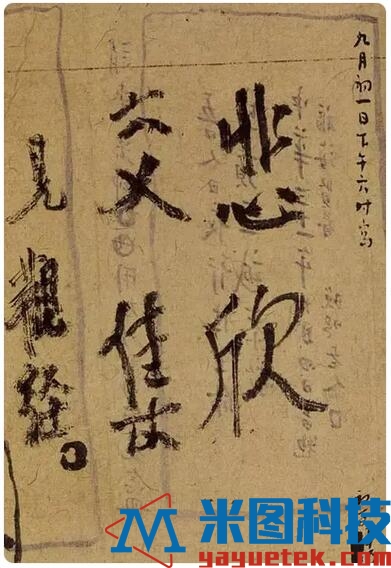 九月初一日下午六时写
悲欣
交集
見觀經。
米图科技
yayuetek.com